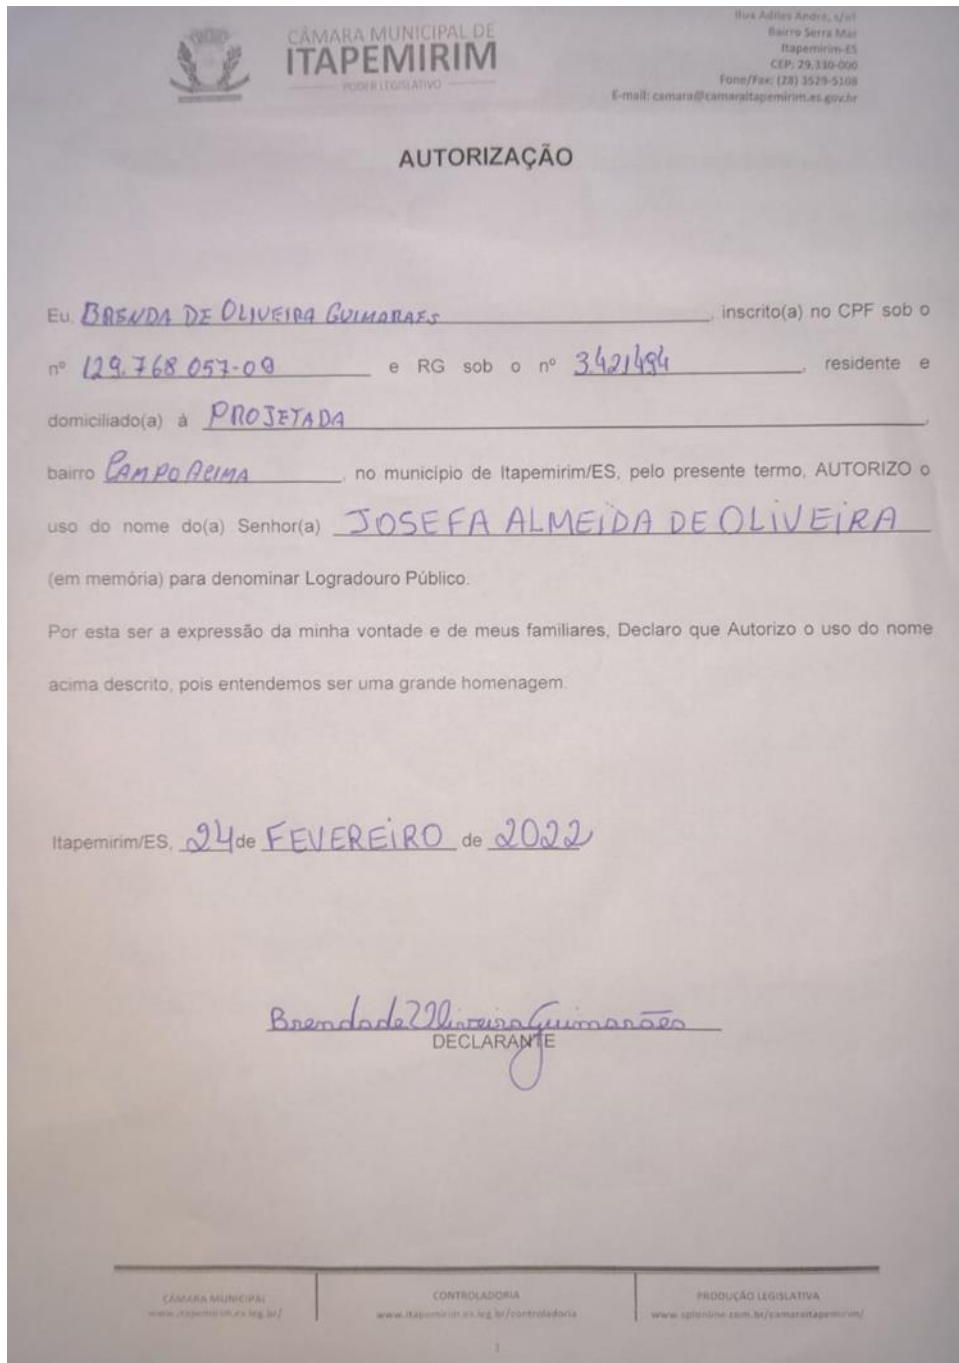 CÂMARA MUNICIPAL DE
ITAPEMIRIM
PODER LEGISLATIVO
Rua Adiles André, s/nº
Bairro Serra Mar
Itapemirim-ES
CEP: 29.330-000
Fone/Fax: (28) 3529-5108
E-mail: camara@camaraitapemirim.es.gov.br
AUTORIZAÇÃO
Eu, BRENDA DE OLIVEIRA GUIMARAES, inscrito(a) no CPF sob o
nº 129.768 057-09 e RG sob o nº 3.421494, residente e
domiciliado(a) à PROJETADA,
bairro CAMPO ACIMA, no município de Itapemirim/ES, pelo presente termo, AUTORIZO o
uso do nome do(a) Senhor(a) JOSEFA ALMEIDA DE OLIVEIRA
(em memória) para denominar Logradouro Público.
Por esta ser a expressão da minha vontade e de meus familiares, Declaro que Autorizo o uso do nome
acima descrito, pois entendemos ser uma grande homenagem.
Itapemirim/ES, 24 de FEVEREIRO de 2022
Brenda de Oliveira Guimarães
DECLARANTE
CÂMARA MUNICIPAL
www.itapemirim.es.leg.br/
CONTROLADORIA
www.itapemirim.es.leg.br/controladoria
PRODUÇÃO LEGISLATIVA
www.splonline.com.br/camaraitapemirim/
1